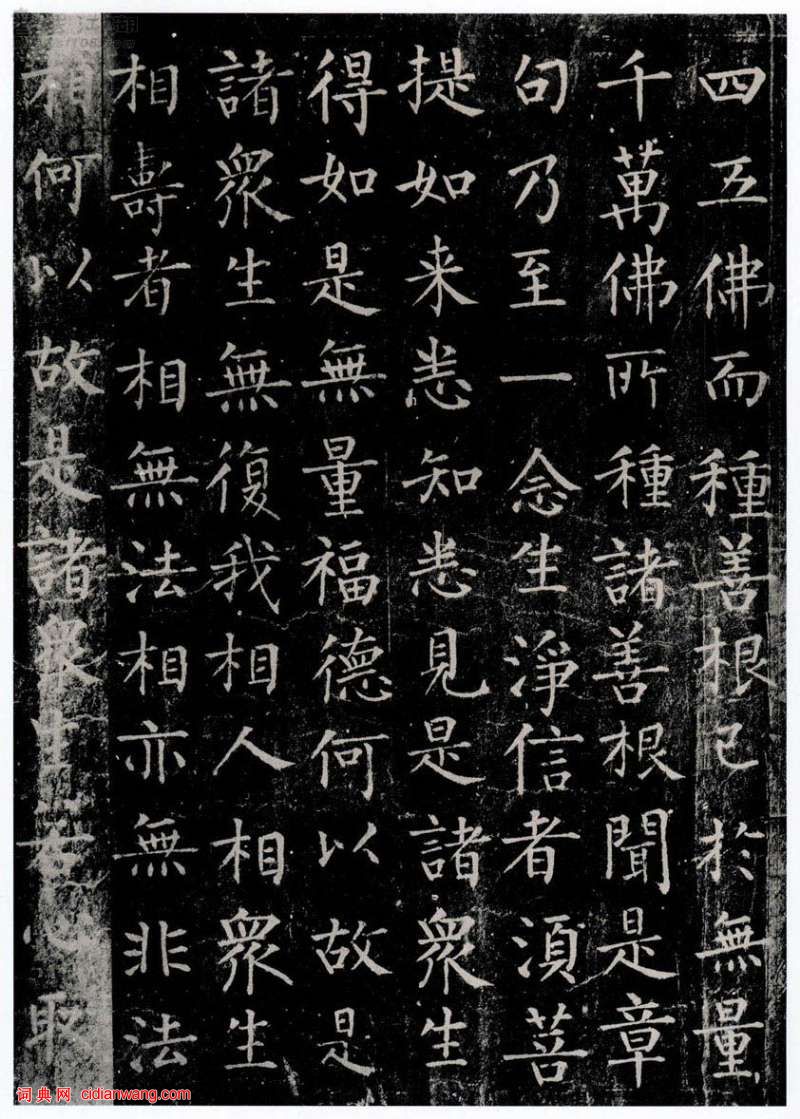 四五佛而種善根已於無量
千萬佛所種諸善根聞是章
句乃至一念生淨信者須菩
提如来悉知悉見是諸衆生
得如是無量福德何以故是
諸衆生無復我相人相衆生
相壽者相無法相亦無非法
相何以故是諸衆生若心取
词典网 cidianwang.com